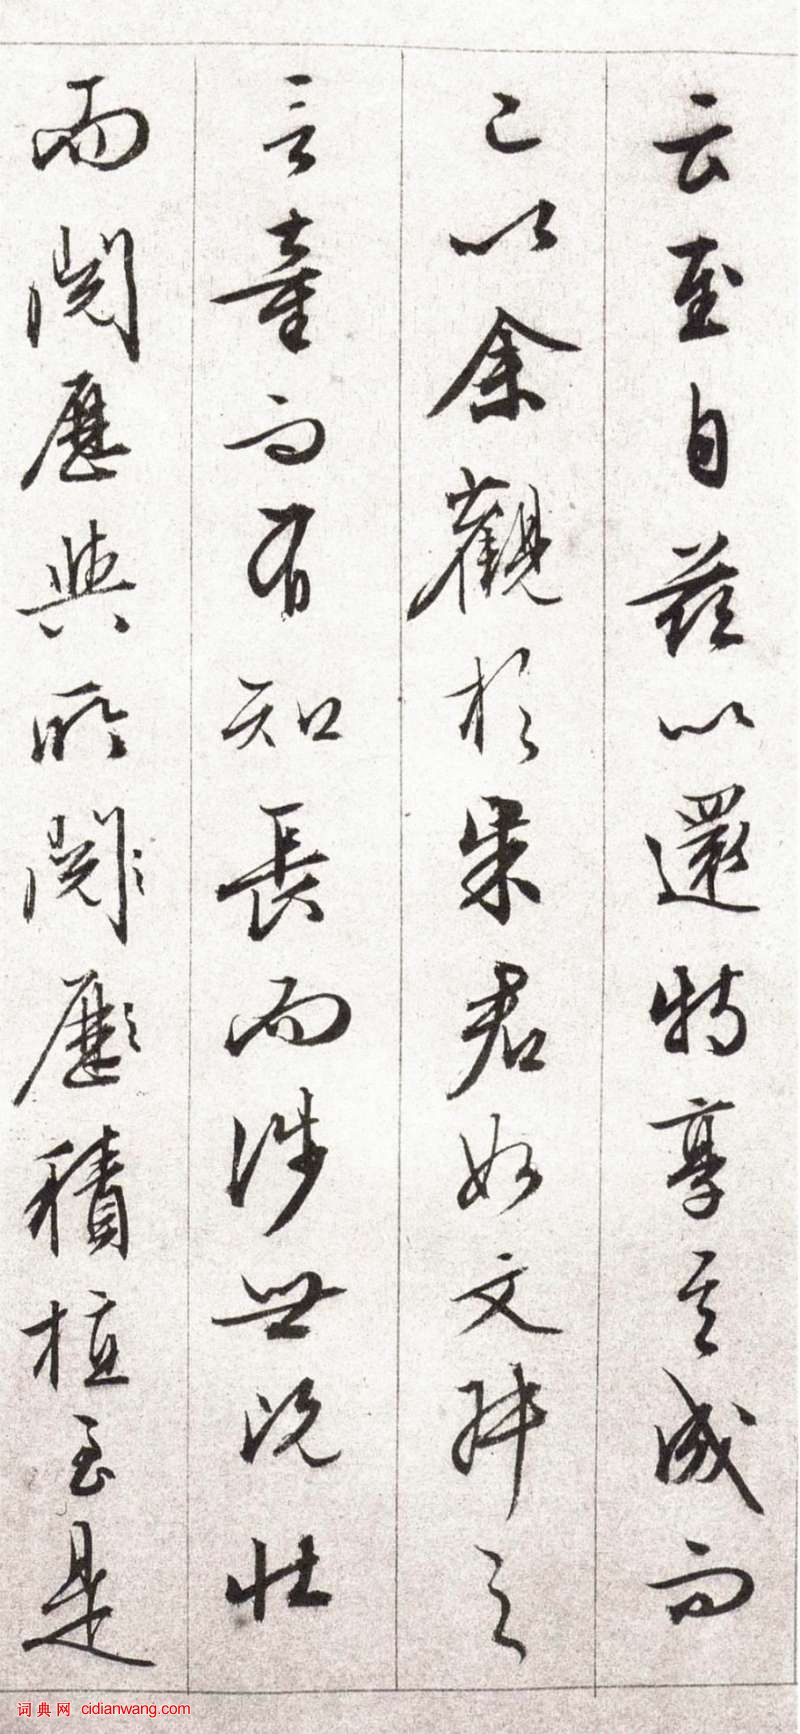 云至自茲以還特享其成而
已以余觀於朱君如文акт之
言童而有知長而涉世既壯
而閱歷與所閱歷積植至是
词典网 cidianwang.com